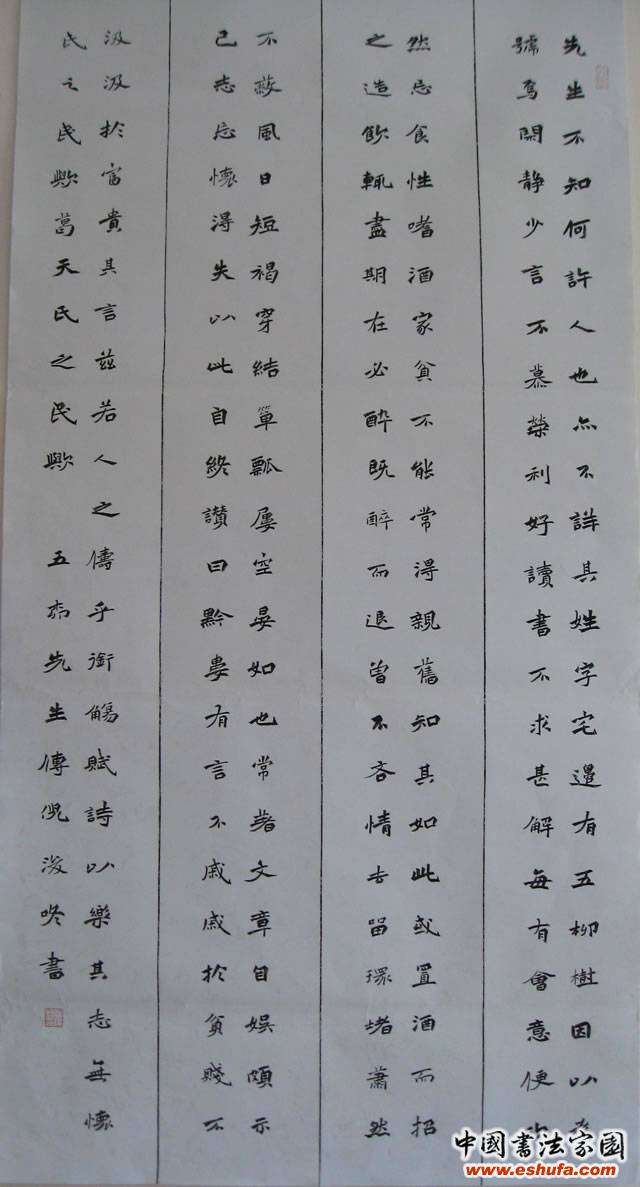 先生不知何許人也亦不詳其姓字宅邊有五柳樹因以為
號焉閑静少言不慕榮利好讀書不求甚解每有會意便欣
然忘食性嗜酒家貧不能常得親舊知其如此或置酒而招
之造飲輒盡期在必醉既醉而退曾不吝情去留環堵蕭然
不蔽風日短褐穿結簞瓢屢空晏如也常著文章自娛頗示
己志忘懷得失以此自終讚曰黔婁有言不戚戚於貧賤不
汲汲於富貴其言茲若人之儔乎銜觴賦詩以樂其志無懷
氏之民歟葛天氏之民歟 五柳先生傳 倪 書
中國書法家園
www.eshufa.com